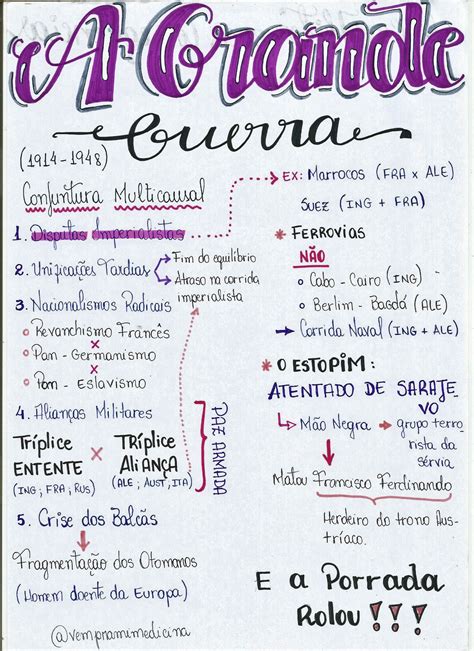 A Grande
Guerra
(1914-1948)
Conjuntura Multicausal
1. Disputas Imperialistas
2. Unificações Tardias
Fim do equilíbrio
Atraso na corrida
imperialista
3. Nacionalismos Radicais
Revanchismo Francês
x
Pan - Germanismo
x
Pan - Eslavismo
4. Alianças Militares
TRÍPLICE ENTENTE
(ING; FRA; RUS)
x
TRÍPLICE ALIANÇA
(ALE; AUST; ITA)
PAZ ARMADA
5. Crise dos Balcãs
Fragmentação dos Otomanos
(Homem doente da Europa)
@vempramimedicina
EX: Marrocos (FRA x ALE)
SUEZ (ING + FRA)
* FERROVIAS
NÃO
Cabo - Cairo (ING)
Berlim - Bagdá (ALE)
Corrida Naval (ING + ALE)
* O ESTOPIM:
ATENTADO DE SARAJE
VO
Mão Negra → grupo terro
rista da
sérvia
Matou Francisco Ferdinando
Herdeiro do trono Aus-
tríaco.
E a Porrada
Rolou !!!